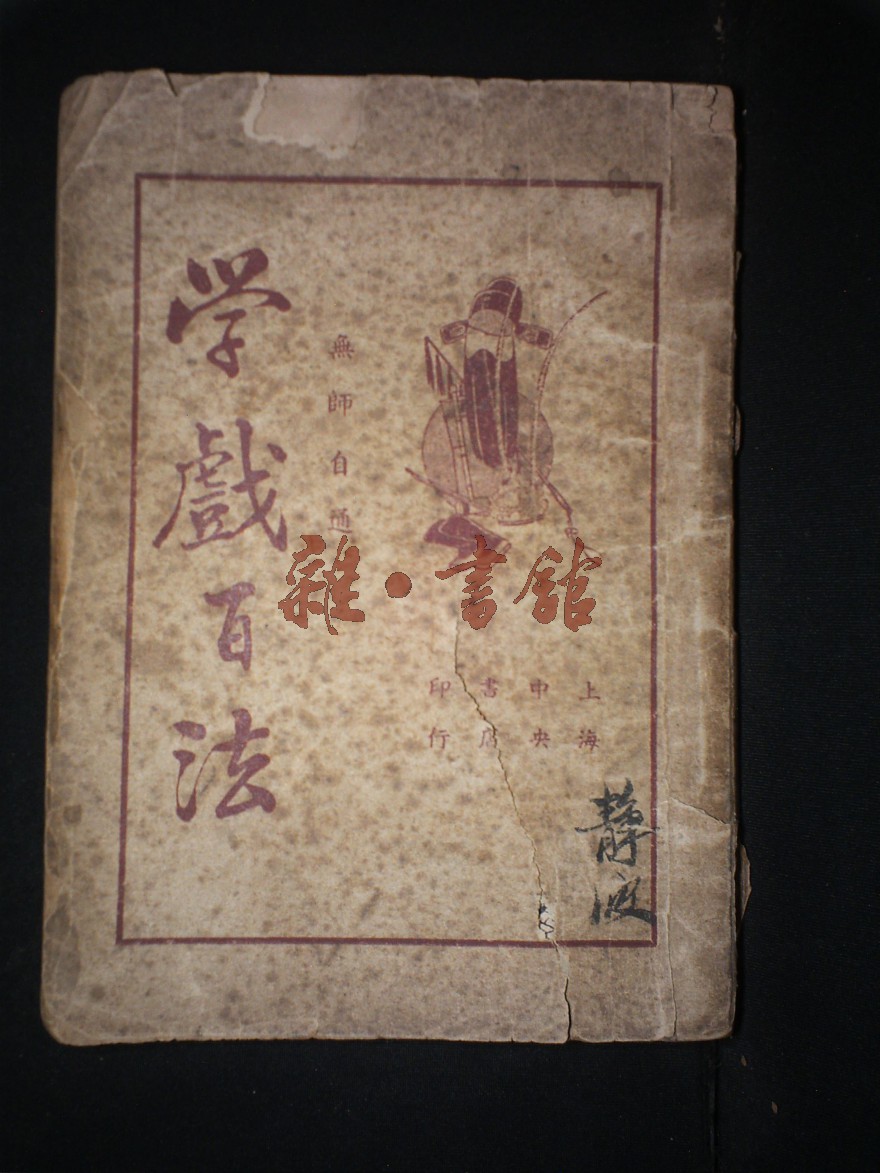 上海
中央
書店
印行
無師自通
学戲百法
靜波
雜·書館